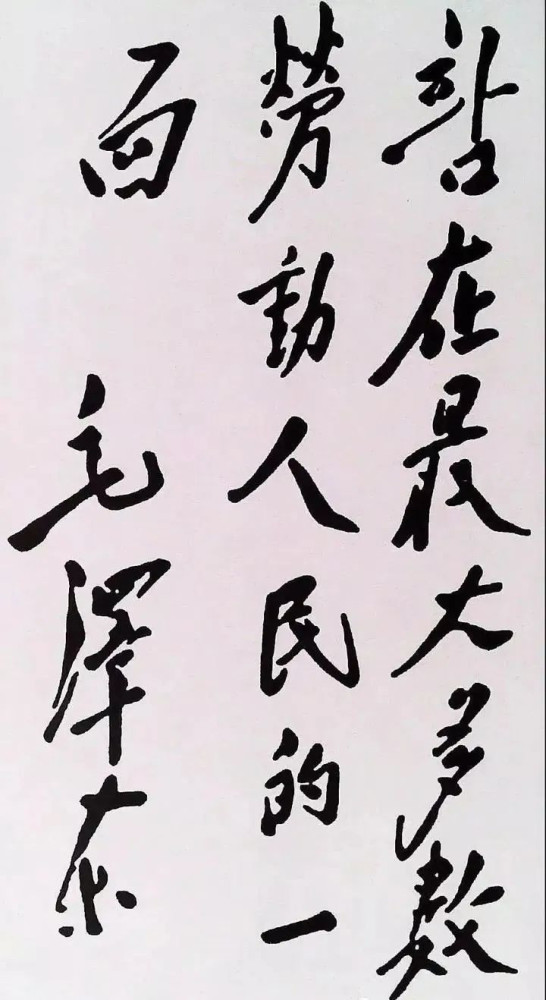 站在最大多數
勞動人民的一
面
毛澤東